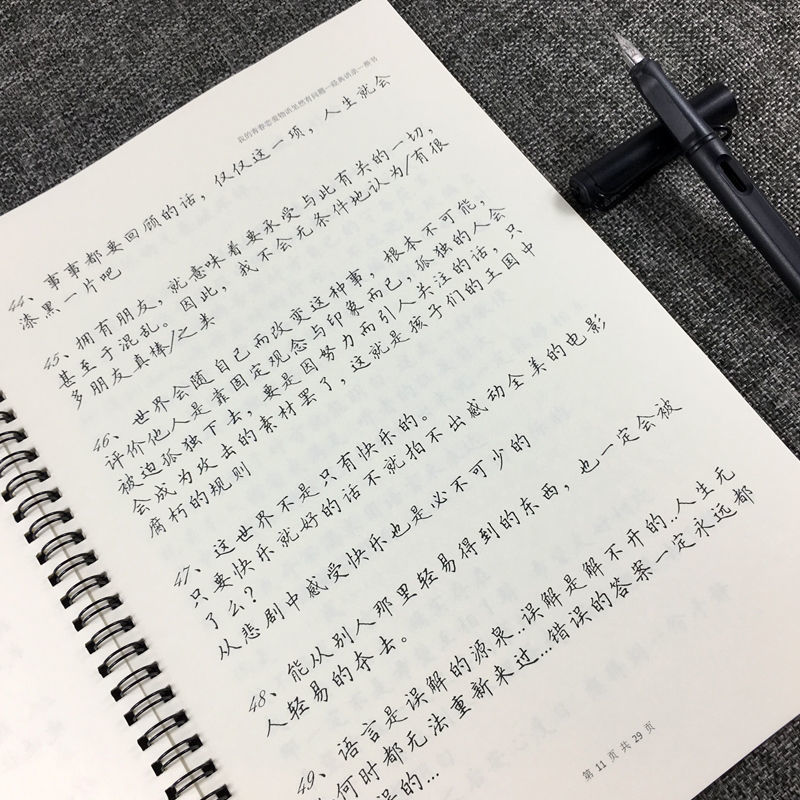 我的青春恋爱物语果然有问题—经典语录—楷书
44、事事都要回顾的话，仅仅这一项，人生就会
漆黑一片吧
45、拥有朋友，就意味着要承受与此有关的一切，
甚至于混乱。因此，我不会无条件地认为/有很
多朋友真棒/之类
46、世界会随自己而改变这种事，根本不可能，
评价他人是靠固定观念与印象而已，孤独的人会
被迫孤独下去，要是因努力而引人关注的话，只
会成为攻击的素材罢了，这就是孩子们的王国中
腐朽的规则
47、这世界不是只有快乐的。
只要快乐就好的话不就拍不出感动全美的电影
了么？
从悲剧中感受快乐也是必不可少的
48、能从别人那里轻易得到的东西，也一定会被
人轻易的夺去。
49、语言是误解的源泉..误解是解不开的..人生无
何时都无法重新来过...错误的答案一定永远都
误的...
第 11 页 共 29 页